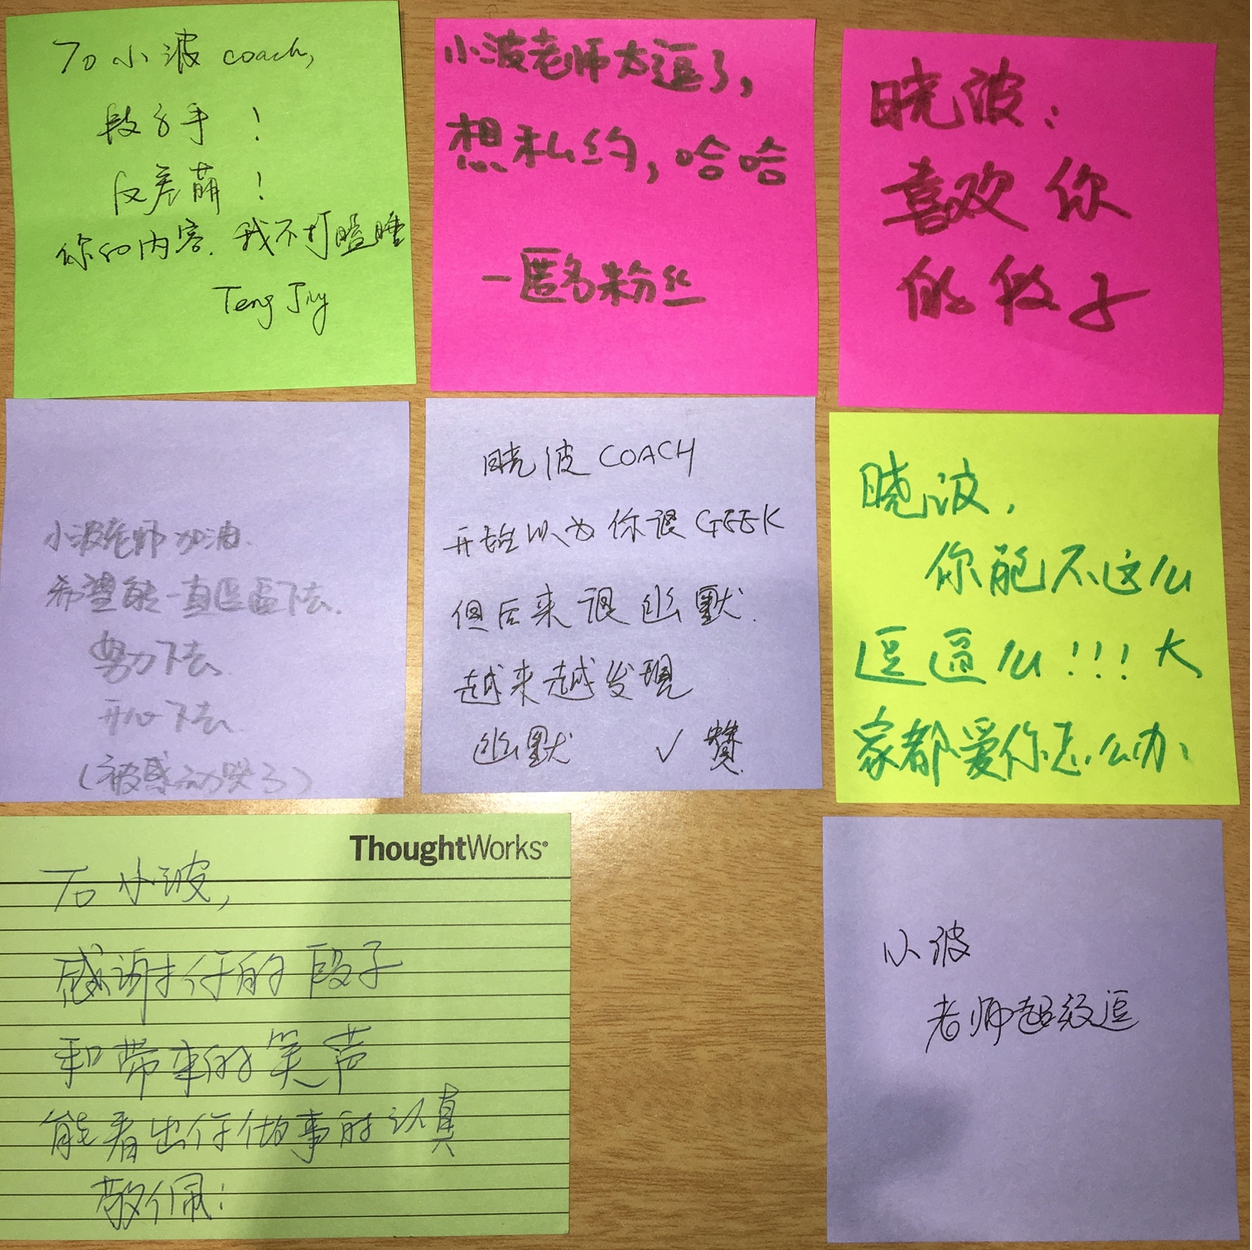 To 小波 coach,
段子手！
反差萌！
你的内容. 我不打瞌睡
Teng Jiy
小波老师太逗了，
想私约，哈哈
—匿名粉丝
晓波：
喜欢你
的段子
小波老师加油.
希望能一直逗逼下去.
努力下去、
开心下去、
(被感动哭了)
晓波 COACH
开始以为你很 GEEK
但后来很幽默.
越来越发现
幽默 √ 赞.
晓波，
你能不这么
逗逼么!!! 大
家都爱你怎么办、
ThoughtWorks®
To 小波,
感谢你的段子
和带来的笑声
能看出你做事的认真
敬佩!
小波
老师超级逗